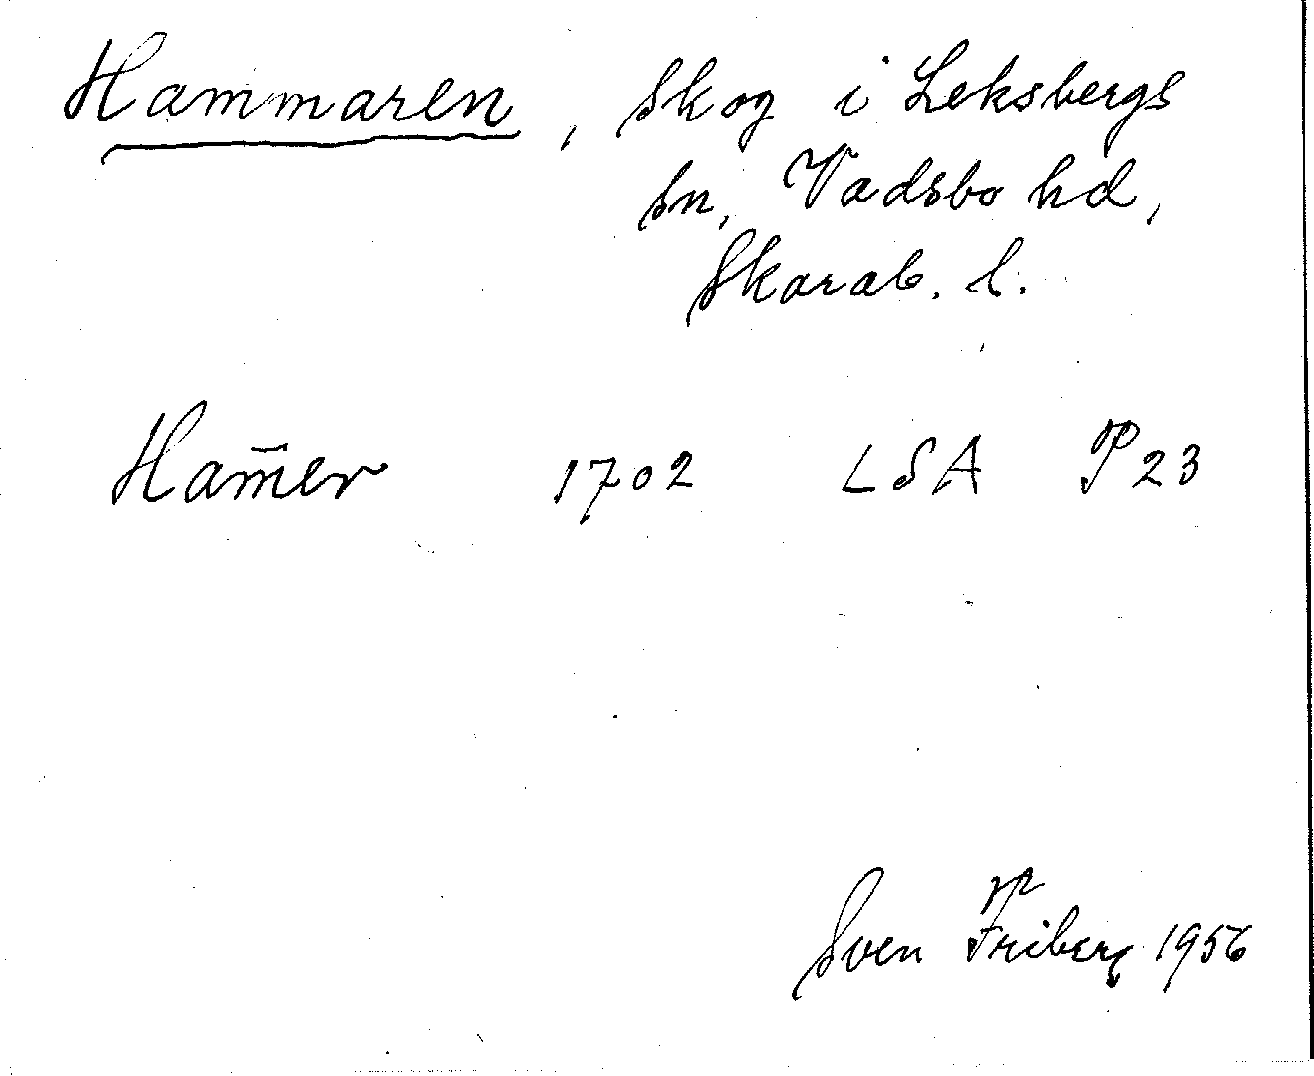 Hammaren, skog i Leksbergs
sn, Vadsbo hd,
Skarab. l.
Ham̄er 1702 LSA P23
Sven Friberg 1956